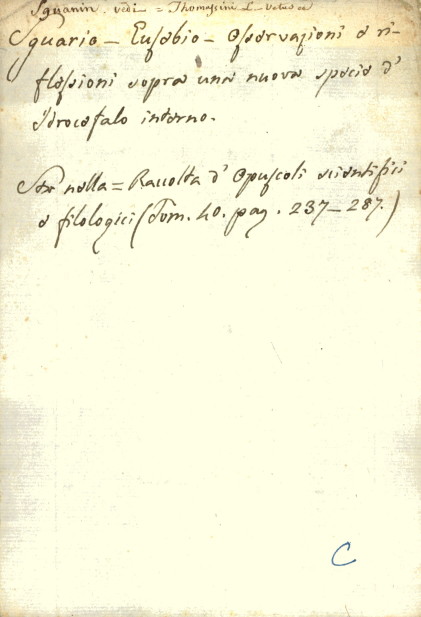 Sguanin. vedi = Thomassini L.
Sguario - Eusebio - Osservazioni e ri-
flessioni sopra una nuova specie d'
Idrocefalo interno.
Sta nella = Raccolta d' Opuscoli scientifici
e filologici (Tom. 40. pag. 237-287.)
C